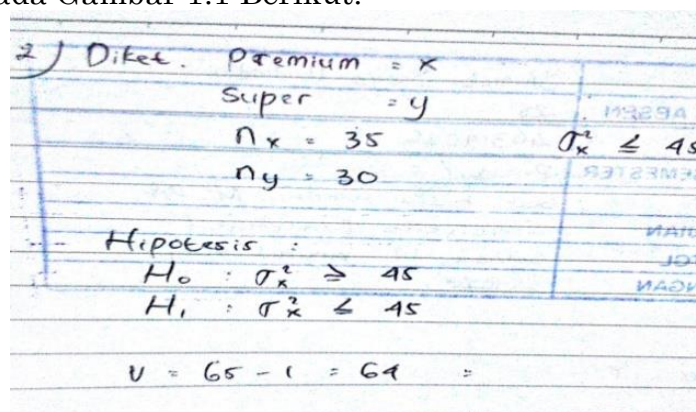 ada Gambar 1.1 Berikut:
2) Diket. Premium = x
Super = y
n x = 35
σ²x ≤ 45
n y = 30
Hipotesis :
H₀ : σ²x ≥ 45
H₁ : σ²x ≤ 45
V = 65 - 1 = 64 =